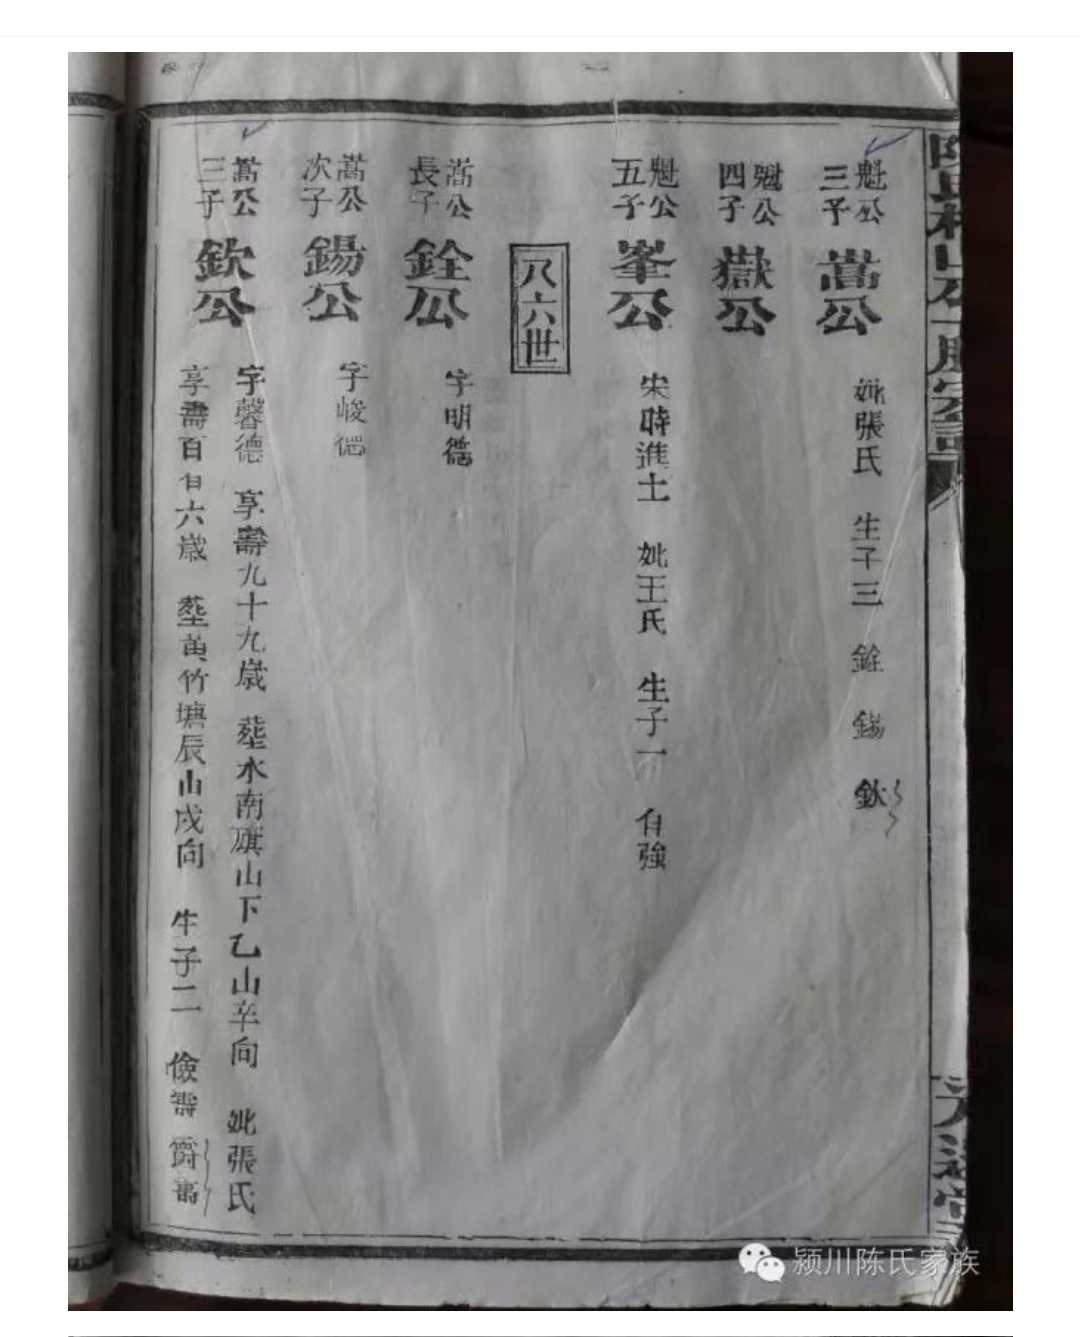 魁公三子
嵩公
妣張氏 生子三 銓 錫 欽
魁公四子
嶽公
魁公五子
峯公
宋時進士 妣王氏 生子一 自強
八六世
嵩公長子
銓公
字明德
嵩公次子
錫公
字峻德
嵩公三子
欽公
字馨德 享壽九十九歲 塟水南旗山下乙山辛向 妣張氏
享壽百有六歲 塟黃竹塘辰山戌向 生子二 儉壽 爵壽
颍川陈氏家族